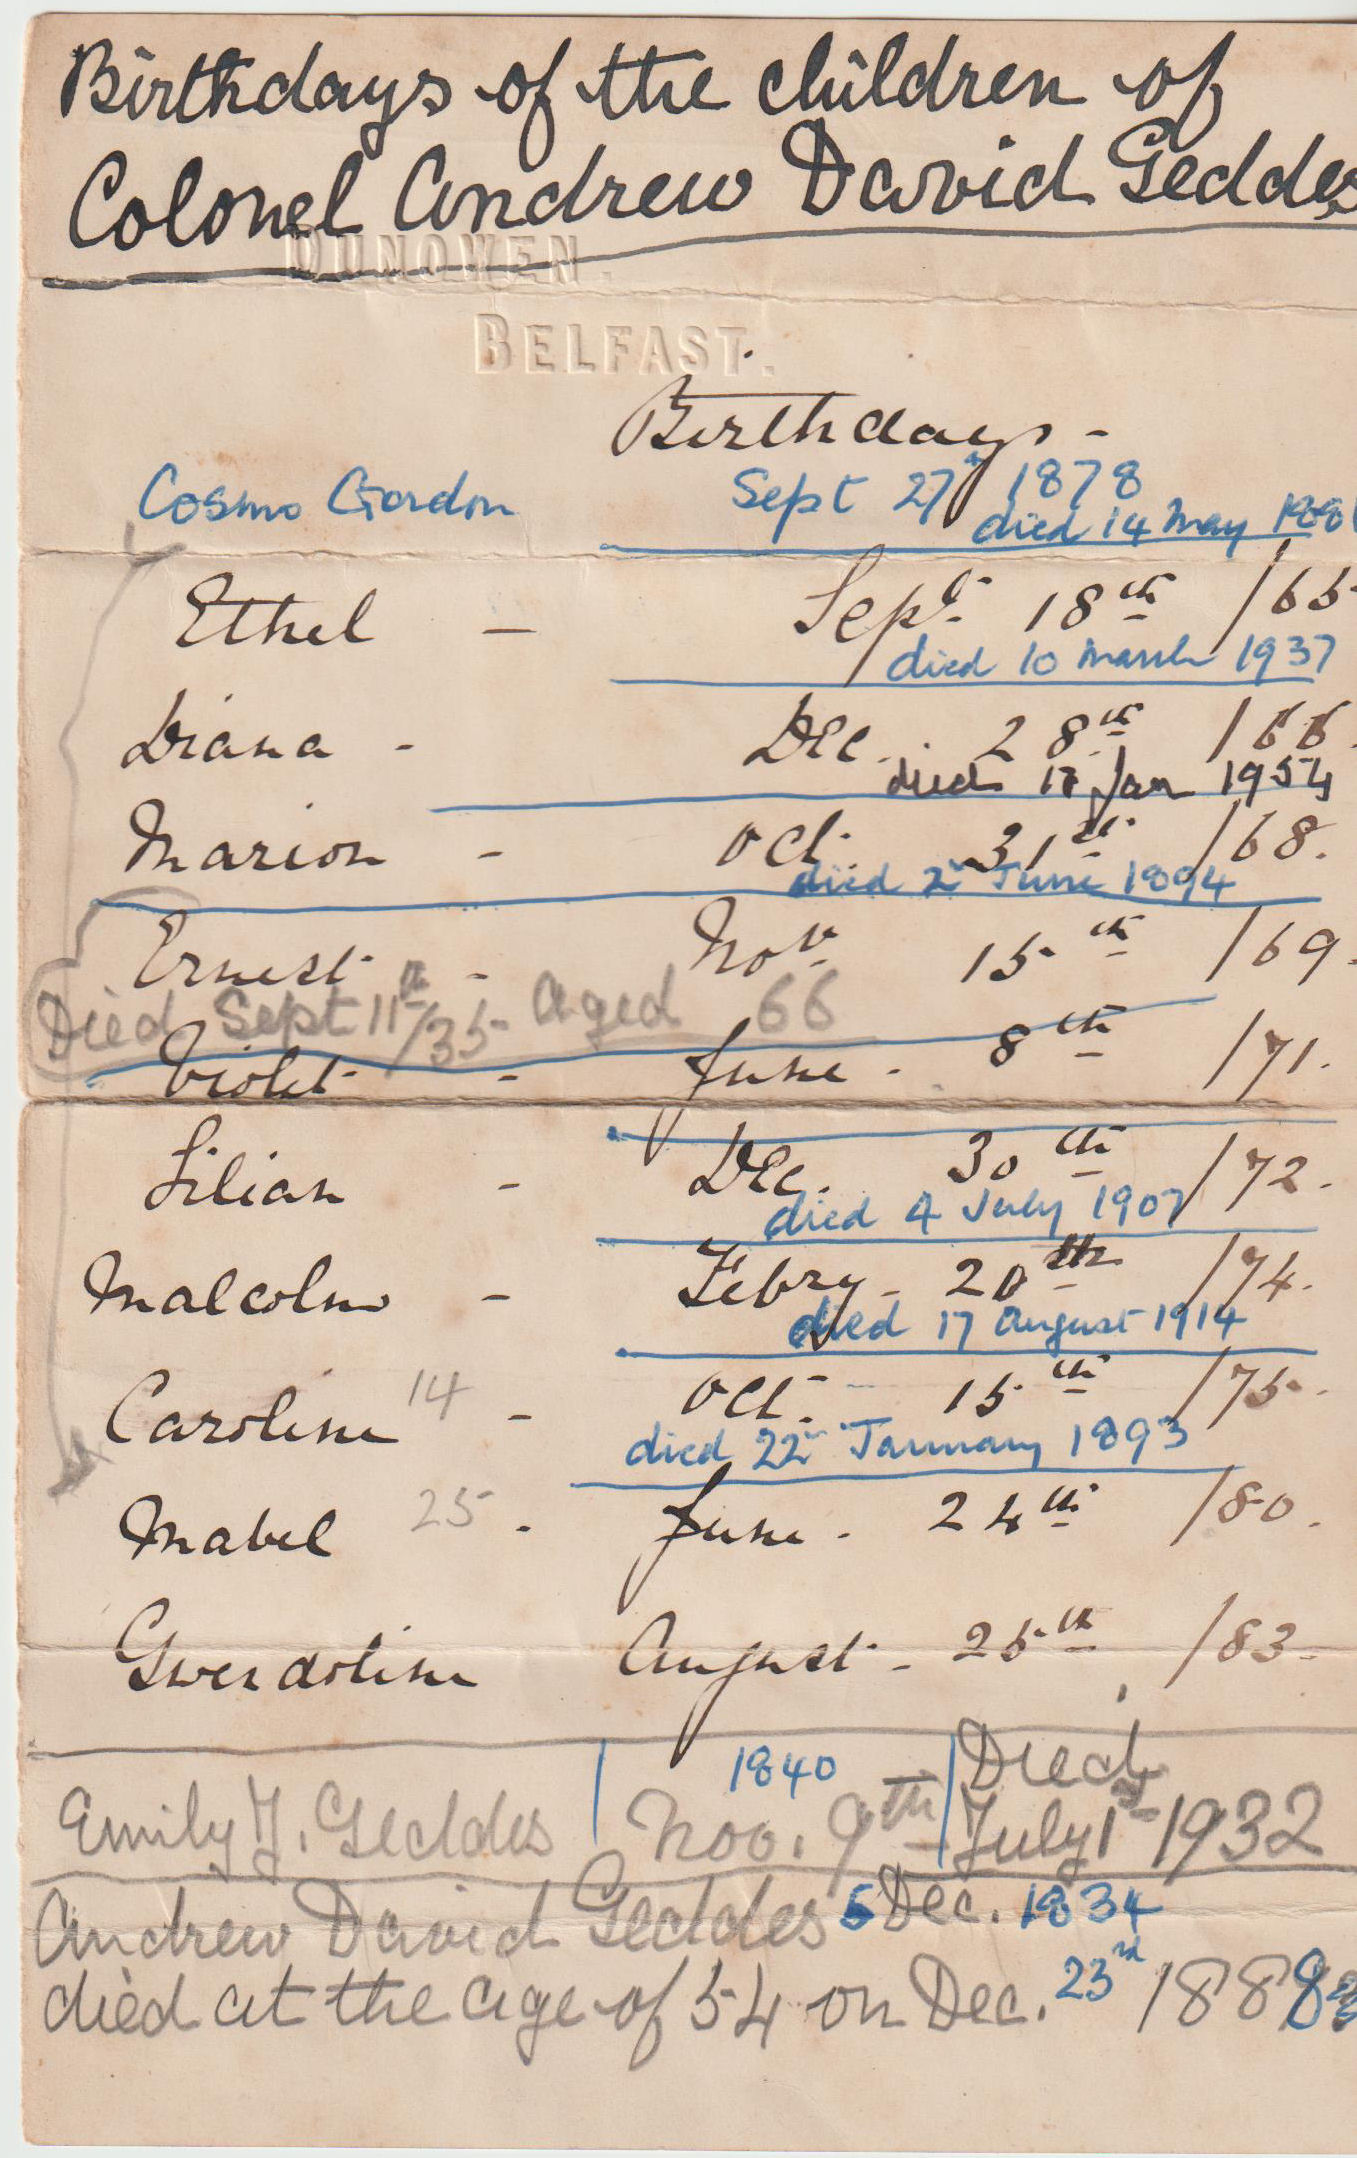 Birthdays of the children of
Colonel Andrew David Geddes
DUNOWEN.
BELFAST.
Birthdays -
Cosmo Gordon Sept 27th 1878
died 14 May 1881
Ethel — Sept. 18th /65
died 10 March 1937
Diana - Dec. 28th /66.
died 17 Jan 1954
Marion - Oct. 31st /68.
died 2nd June 1894
Ernest - Novr. 15th /69.
Died Sept 11th/35 aged 66
Violet - June - 8th /71.
Lilian - Dec. 30th /72.
died 4 July 1907
Malcolm - Febry - 20th /74.
died 17 August 1914
Caroline 14 - Oct. 15th /75.
died 22nd January 1893
Mabel 25 - June - 24th /80.
Gwendoline August - 25th /83.
1840 Died
Emily J. Geddes Nov. 9th July 1st 1932
Andrew David Geddes 5 Dec. 1834
died at the age of 54 on Dec. 23rd 1888